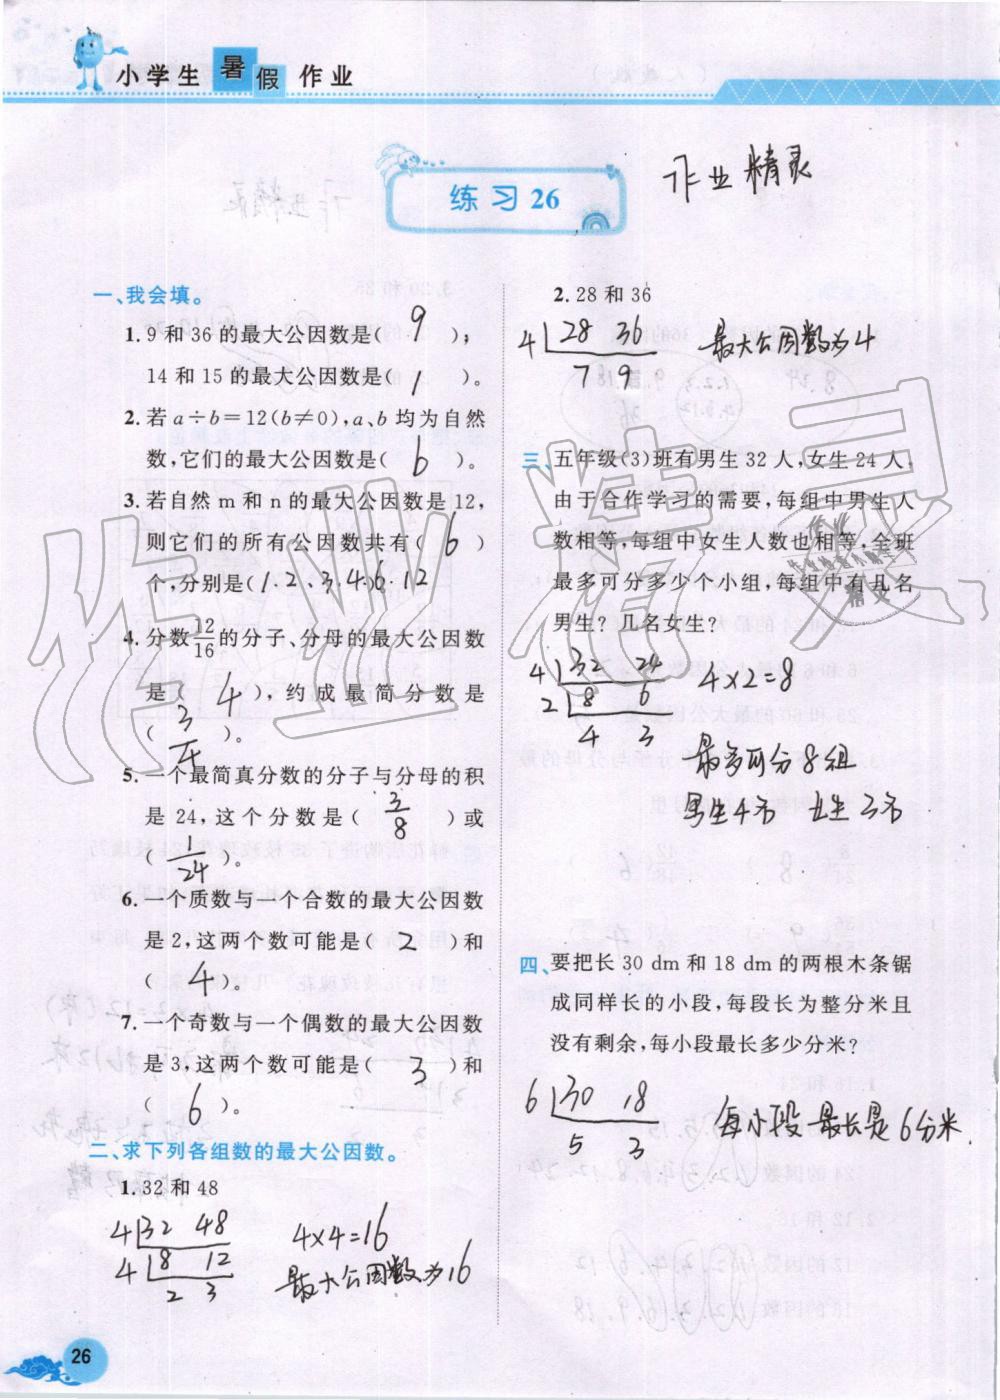 小学生暑假作业
练习26
作业精灵
一、我会填。
1.9和36的最大公因数是( 9 );
14和15的最大公因数是( 1 )。
2.若a÷b=12(b≠0),a、b均为自然
数,它们的最大公因数是( b )。
3.若自然m和n的最大公因数是12,
则它们的所有公因数共有( 6 )
个,分别是(1.2、3.4)6.12
4.分数12/16的分子、分母的最大公因数
是( 4 ),约成最简分数是
( 3/4 )。
5.一个最简真分数的分子与分母的积
是24,这个分数是( 3/8 )或
( 1/24 )。
6.一个质数与一个合数的最大公因数
是2,这两个数可能是( 2 )和
( 4 )。
7.一个奇数与一个偶数的最大公因数
是3,这两个数可能是( 3 )和
( 6 )。
二、求下列各组数的最大公因数。
1.32和48
4 32 48
4 8 12
2 3
4×4=16
最大公因数为16
2.28和36
4 28 36
7 9
最大公因数为4
三、五年级(3)班有男生32人,女生24人,
由于合作学习的需要,每组中男生人
数相等,每组中女生人数也相等,全班
最多可分多少个小组,每组中有几名
男生?几名女生?
4 32 24
2 8 6
4 3
4×2=8
最多可分8组
男生4名 女生3名
四、要把长30 dm和18 dm的两根木条锯
成同样长的小段,每段长为整分米且
没有剩余,每小段最长多少分米?
6 30 18
5 3
每小段最长是6分米.
26
作业精灵